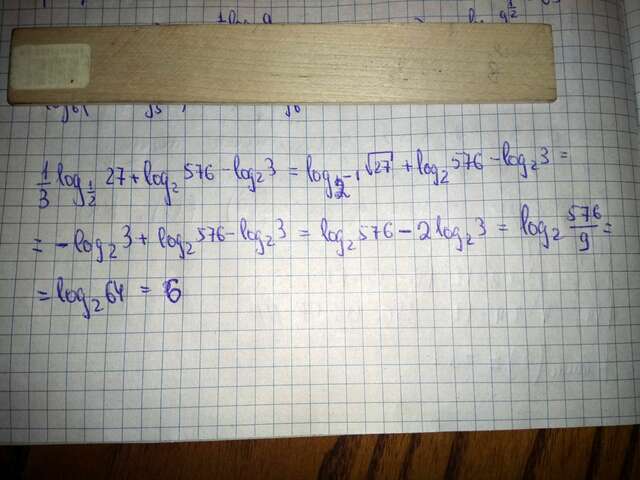 1/3 log_{1/2} 27 + log_2 576 - log_2 3 = log_{2^{-1}} √27 + log_2 576 - log_2 3 =
= -log_2 3 + log_2 576 - log_2 3 = log_2 576 - 2log_2 3 = log_2 576/9 =
= log_2 64 = 6